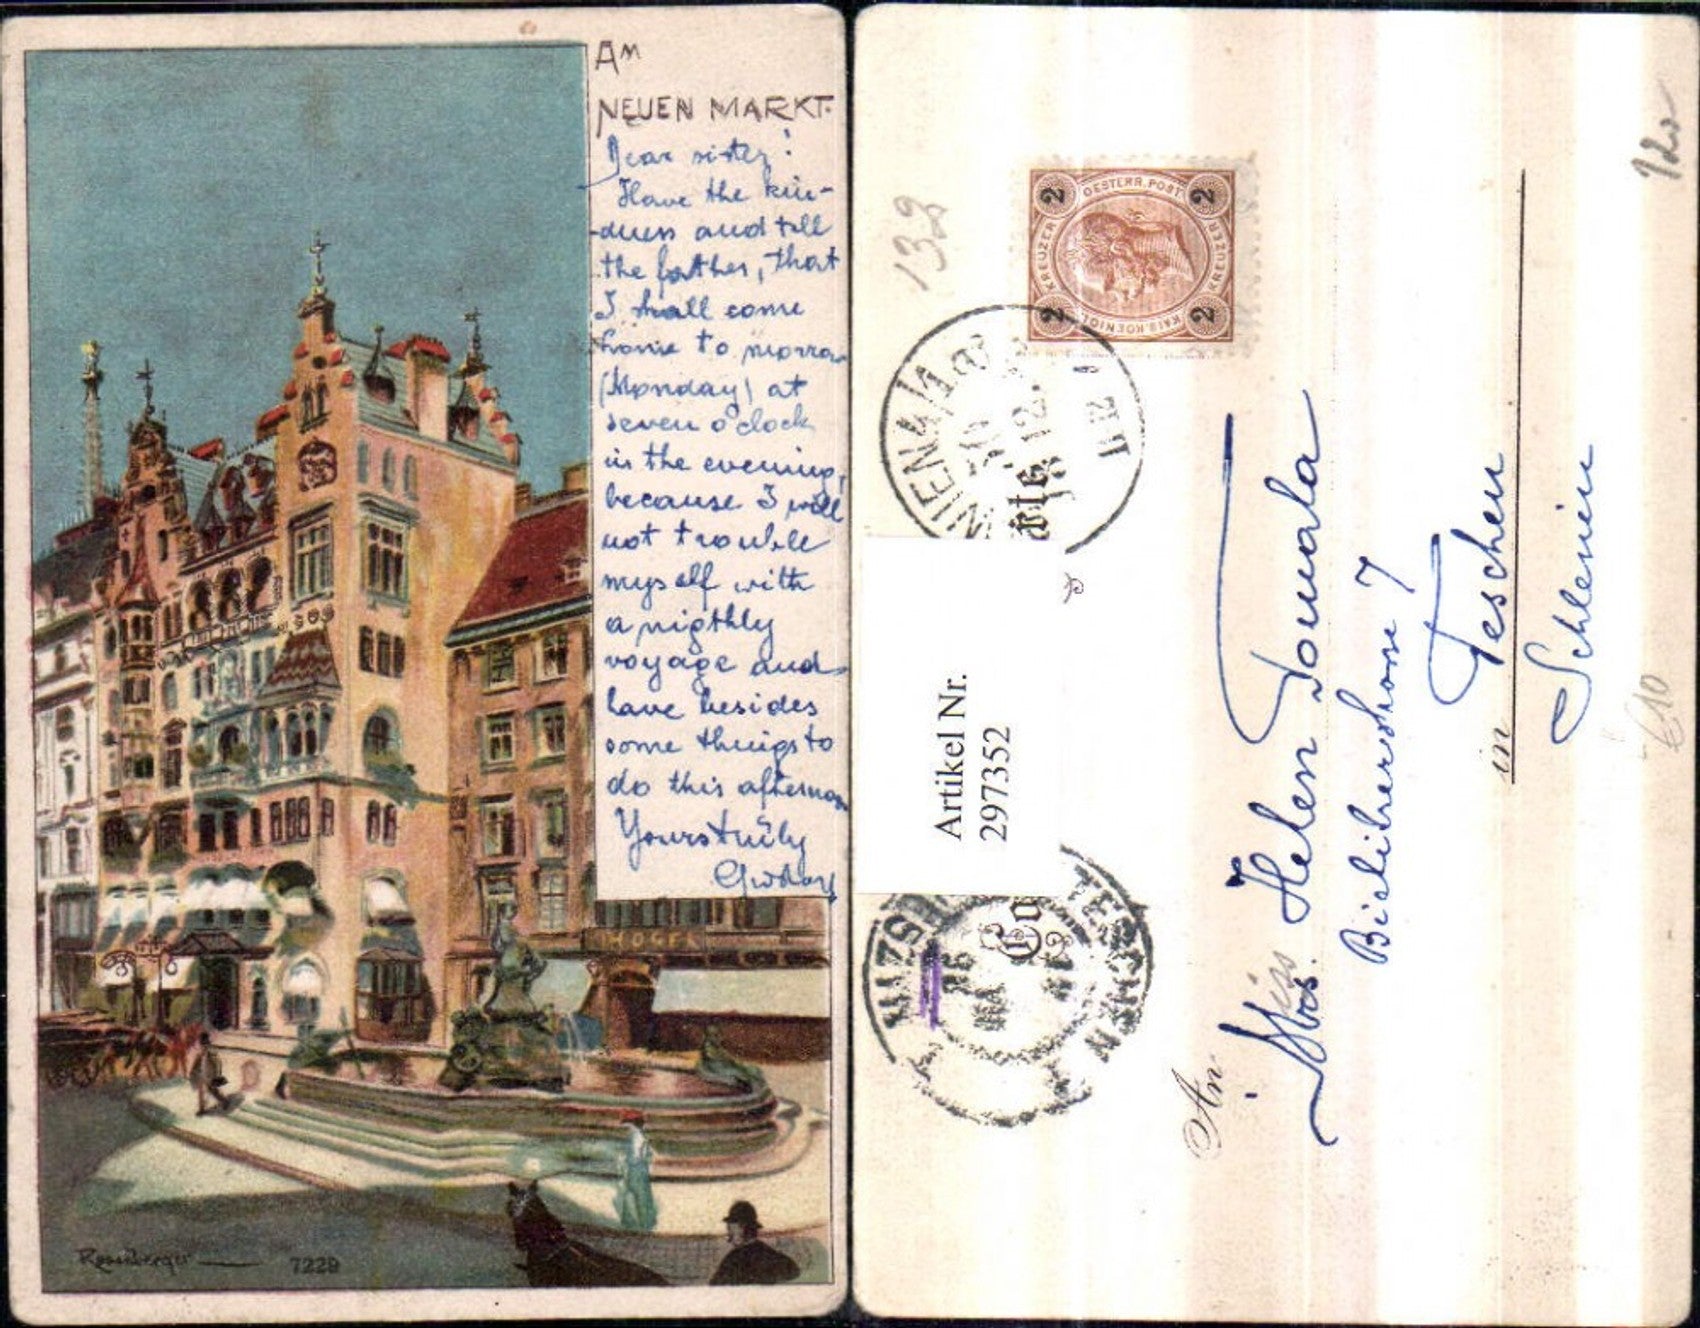 AM
NEUEN MARKT.
Dear sister!
Have the kin-
dness and tell
the father, that
I shall come
home to morro
(Monday) at
seven o'clock
in the evening,
because I will
not trouble
myself with
a nigthly
voyage and
have besides
some things to
do this afternoon
Yours truly
Rosenberger 7229
2 OESTERR. POST. 2
KREUZER KREUZER
2 KAIS. KOENIGL. 2
WIEN
TESCHEN
Artikel Nr.
297352
133
120
An
Miss Helen
7
Teschen
in
Schlesien